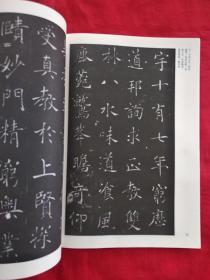 宇十有七年窮歷
道邦詢求正教雙
林八水味道飡風
鹿菀鷲峯瞻奇仰
受真教於上賢探
賾妙門精窮奧業